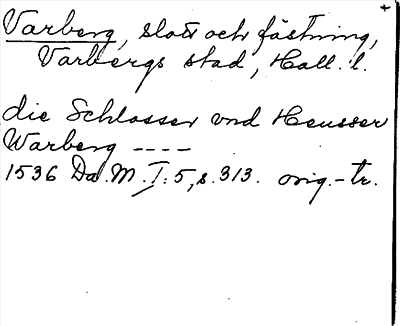 Varberg, slott och fästning,
Varbergs stad, Hall. l.
die Schlosser vnd Heusser
Warberg ----
1536 Da. M. I: 5, s. 313. orig.-tr.